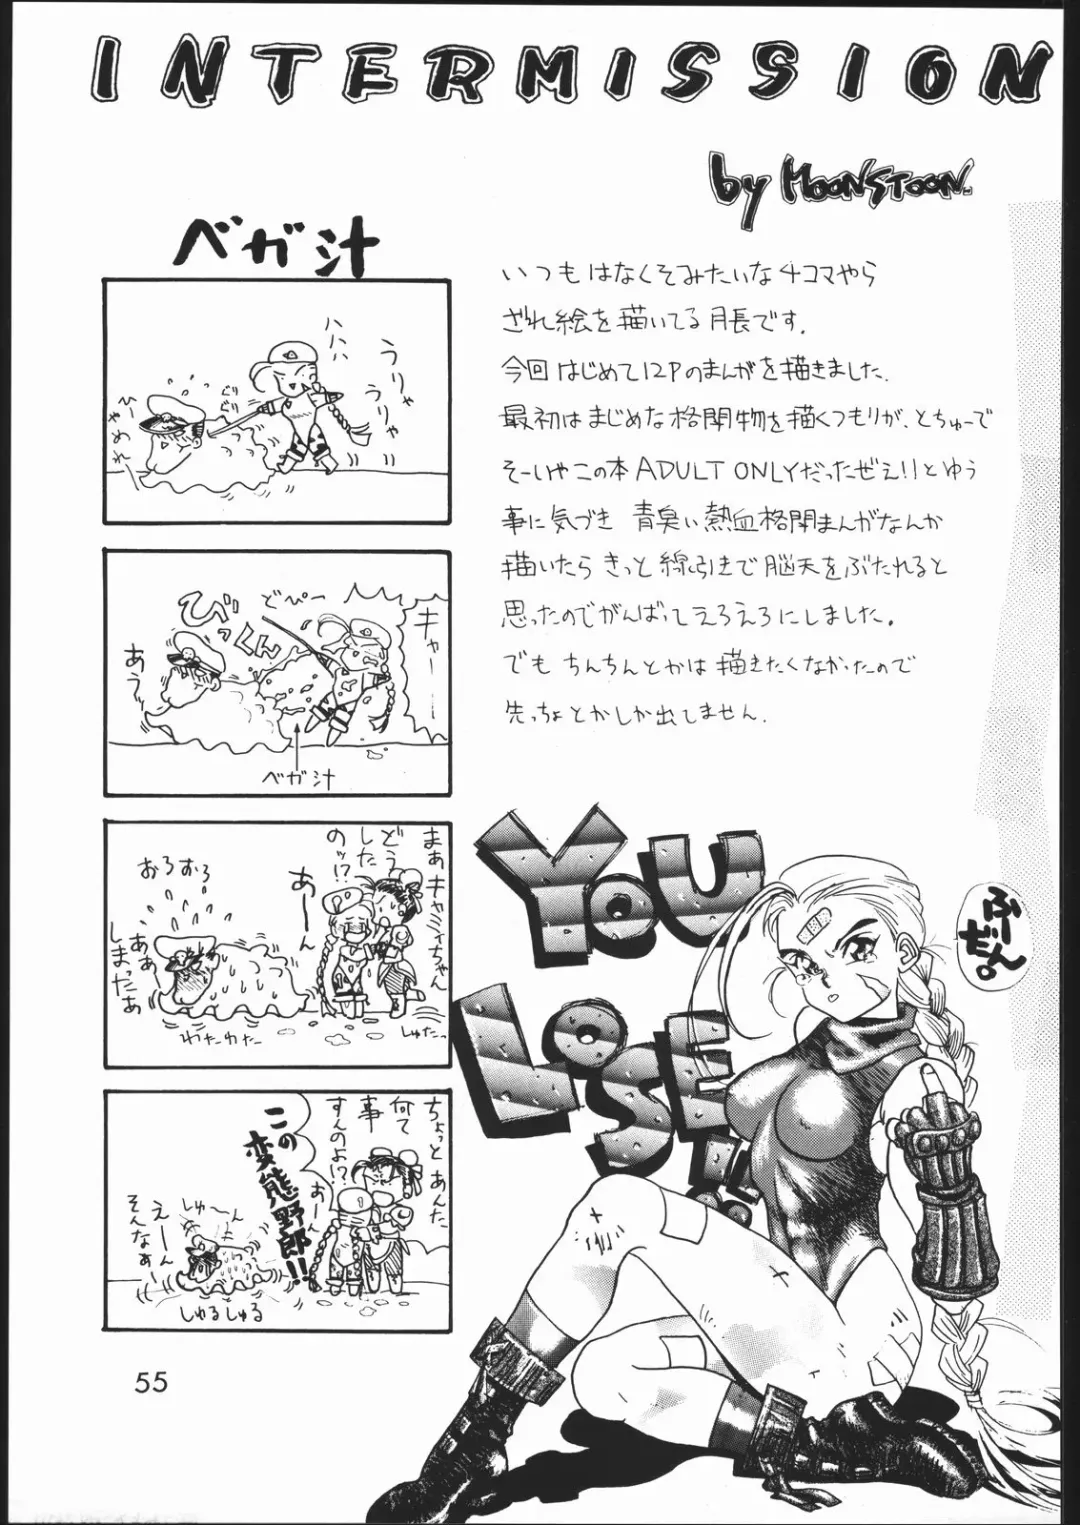 INTERMISSION
by MOONSTOON.
ベガ汁
ハハハ
うりゃ
うりゃ
ぐりぐり
ひー
やめれ
びっくん
どぴー
キャー
あうっ
ベガ汁
まぁキャミィちゃん
どう
した
のッ!?
あーん
おろおろ
ああ
しまったぁ
わたわた
しゅた…っ
ちょっとあんた
何て
事
すんのよ!?
あーん
この
変態野郎!!
しゅ〜ん
えーん
そんなぁー
しゅるしゅる
いつもはなくそみたいな4コマやら
ざれ絵を描いてる月長です。
今回はじめて12Pのまんがを描きました。
最初はまじめな格闘物を描くつもりが、とちゅーで
そーいやこの本ADULT ONLYだったぜえ!!とゆう
事に気づき 青臭い熱血格闘まんがなんか
描いたら きっと線引きで脳天をぶたれると
思ったのでがんばってえろえろにしました。
でも ちんちんとかは描きたくなかったので
先っちょとかしか出してません。
YOU
LOSE!!
ふーん
だ。
55